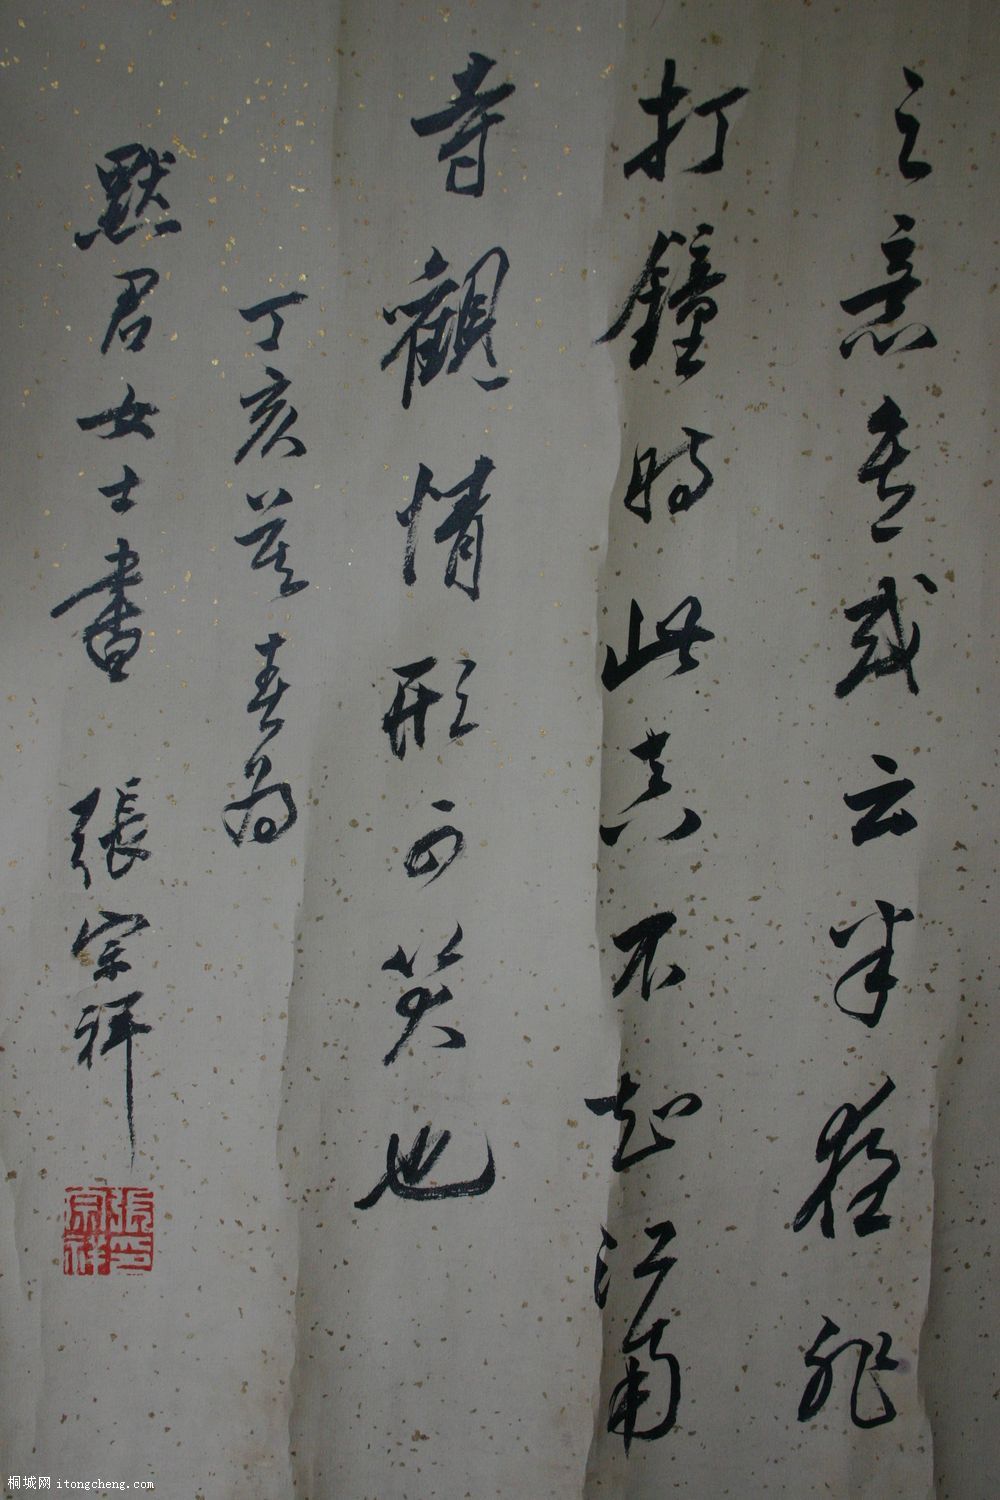 之意盡或云半夜非
打鐘時此真不知江南
寺觀情形可笑也
丁亥莫春為
默君女士書 張宗祥
張宗祥印
桐城网 itongcheng.com